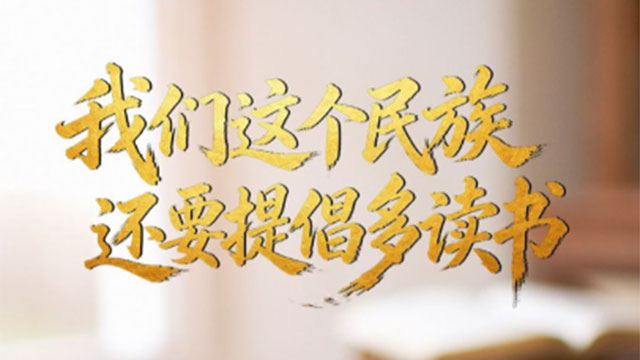 我们这个民族
还要提倡多读书